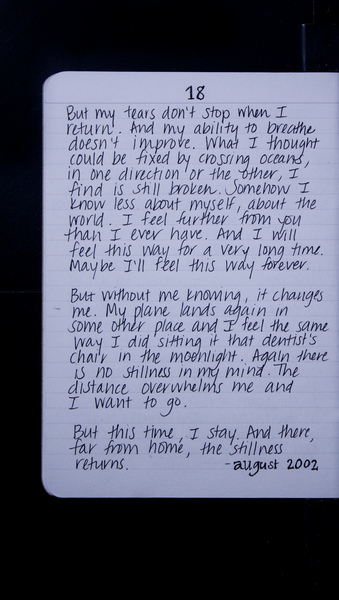 18
But my tears don't stop when I
return. And my ability to breathe
doesn't improve. What I thought
could be fixed by crossing oceans,
in one direction or the other, I
find is still broken. Somehow I
know less about myself, about the
world. I feel further from you
than I ever have. And I will
feel this way for a very long time.
Maybe I'll feel this way forever.
But without me knowing, it changes
me. My plane lands again in
some other place and I feel the same
way I did sitting it that dentist's
chair in the moonlight. Again there
is no stillness in my mind. The
distance overwhelms me and
I want to go.
But this time, I stay. And there,
far from home, the stillness
returns.
-august 2002